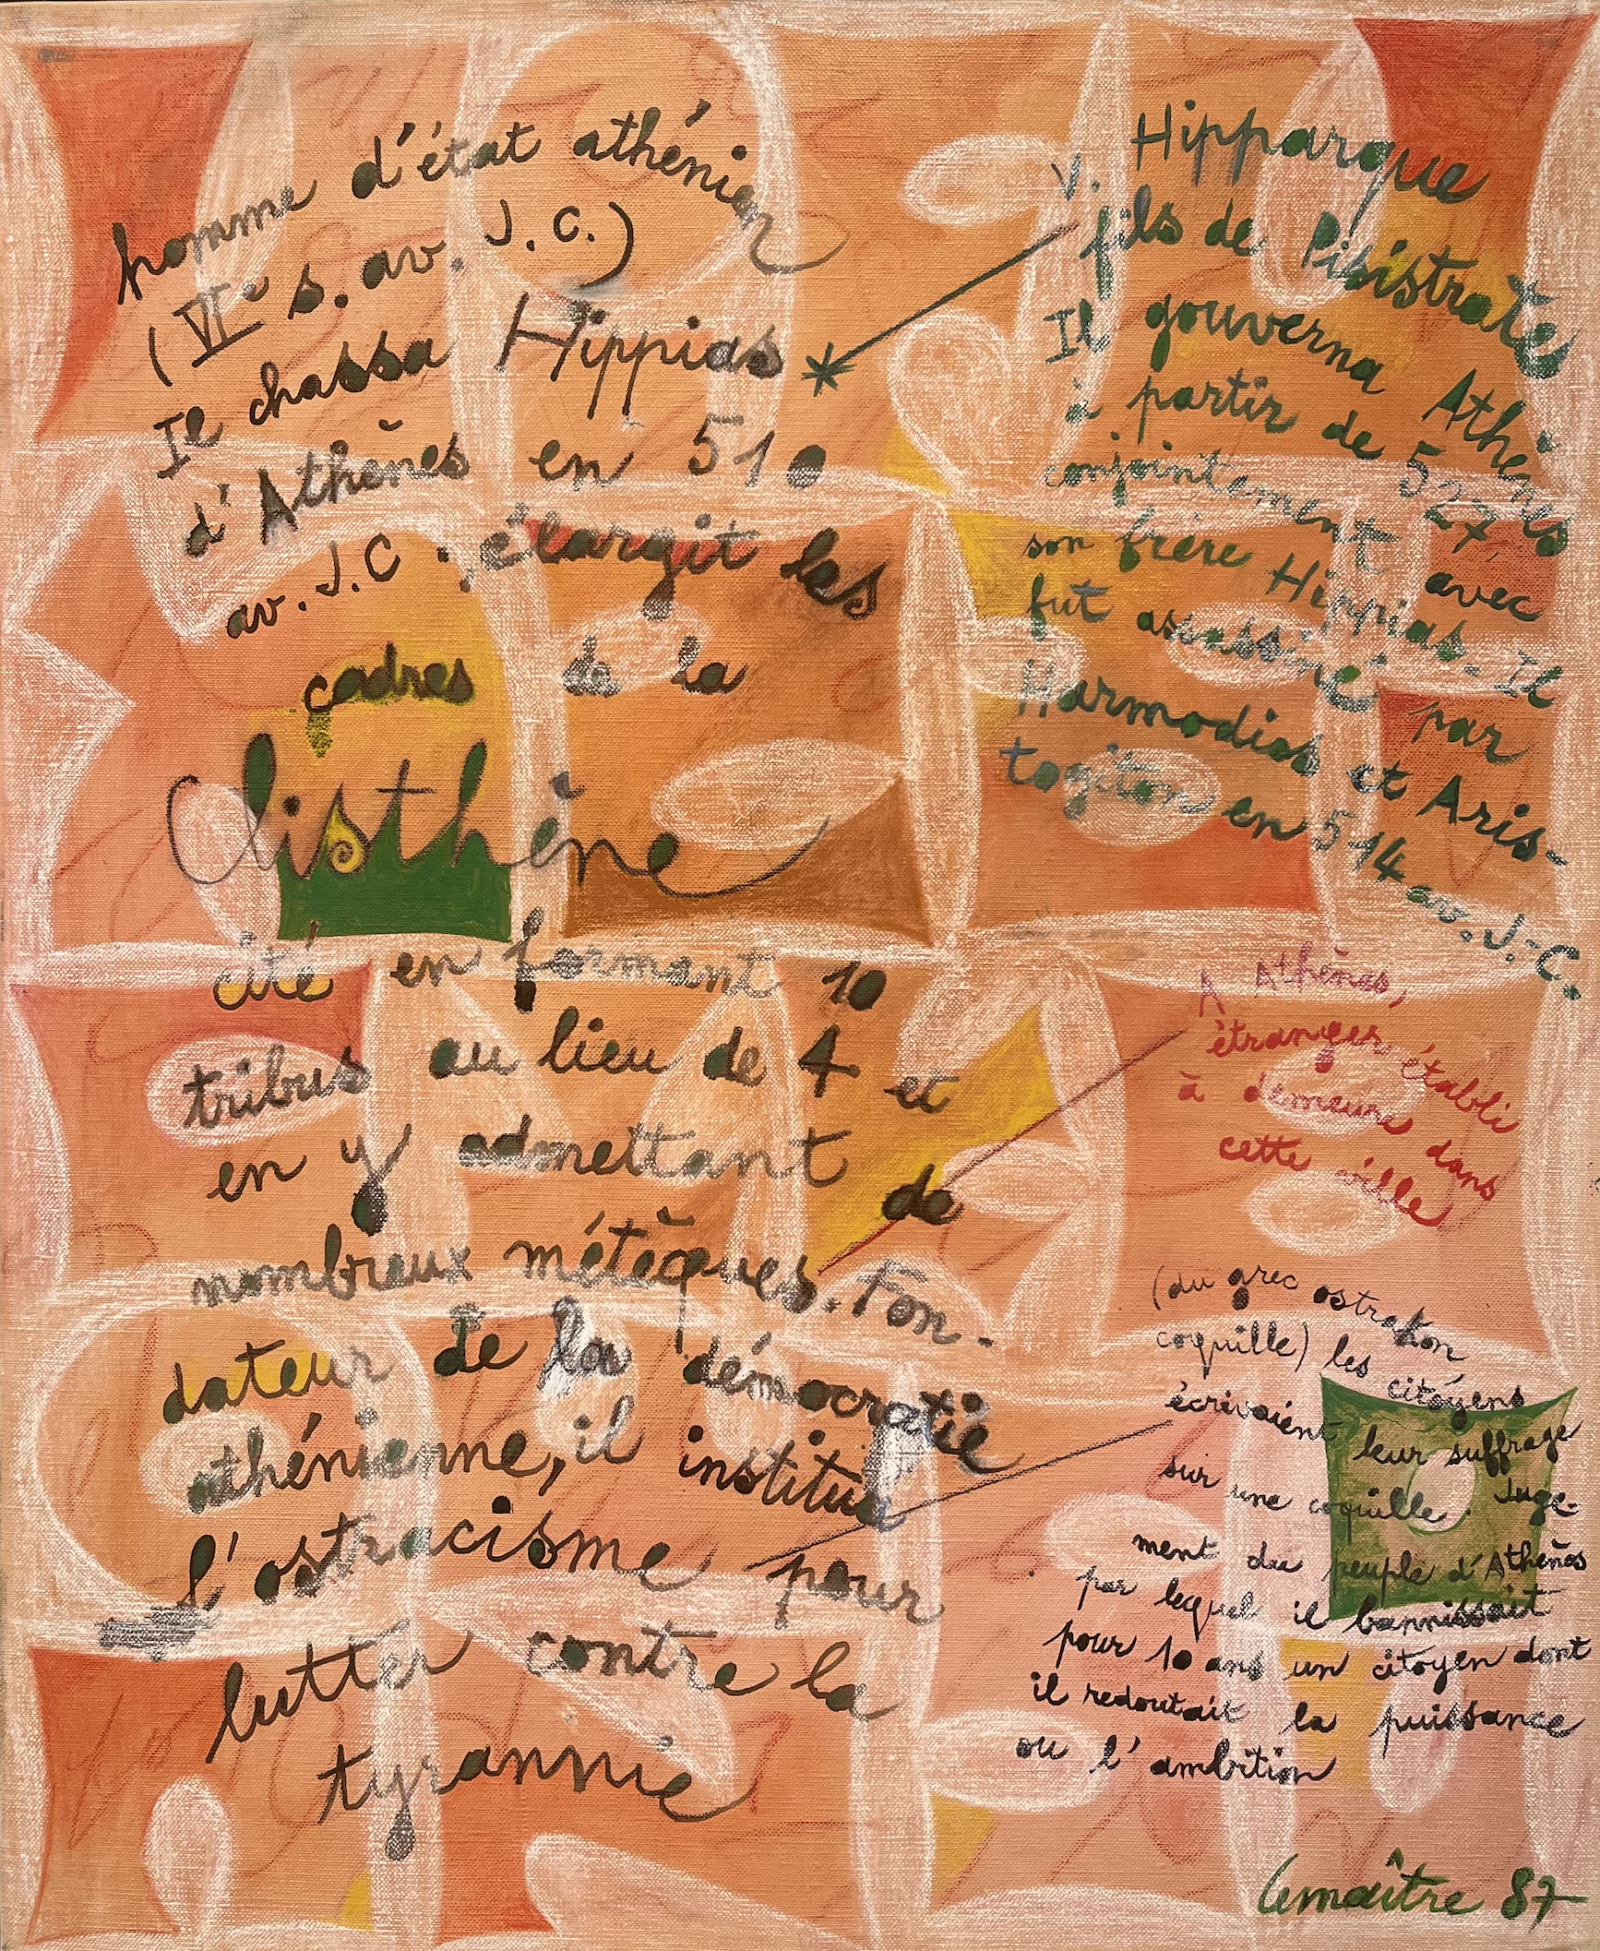 homme d'état athénien
(VIe s. av. J.C.)
Il chassa Hippias *
d'Athènes en 510
av. J.C ; élargit les
cadres de la
Clisthène
cité en formant 10
tribus au lieu de 4 et
en y admettant de
nombreux métèques. Fon-
dateur de la démocratie
athénienne, il institua
l'ostracisme pour
lutter contre la
tyrannie
v. Hipparque
fils de Pisistrate
Il gouverna Athènes
à partir de 527,
conjointement avec
son frère Hippias. Il
fut assassiné par
Harmodios et Aris-
togiton en 514 av. J.-C.
A Athènes,
étranger établi
à demeure dans
cette ville
(du grec ostrakon
coquille) les citoyens
écrivaient leur suffrage
sur une coquille. Juge-
ment du peuple d'Athènes
par lequel il bannissait
pour 10 ans un citoyen dont
il redoutait la puissance
ou l'ambition
Lemaître 87